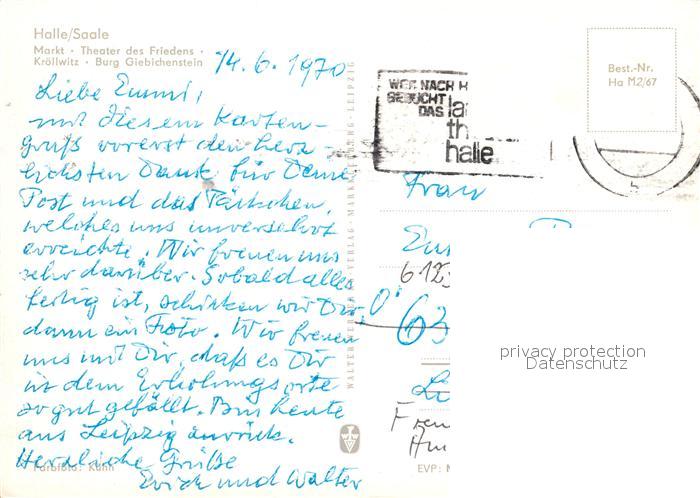 Halle/Saale
Markt · Theater des Friedens ·
Kröllwitz · Burg Giebichenstein
14.6.1970
Liebe Emmi,
mit diesem Karten-
gruß vorerst den herz-
lichsten Dank für Deine
Post und das Päckchen,
welches uns unversehrt
erreichte. Wir freuen uns
sehr darüber. Sobald alles
fertig ist, schicken wir Dir
dann ein Foto. Wir freuen
uns mit Dir, daß es Dir
in dem Erholungsorte
so gut gefällt. Bin heute
aus Leipzig zurück.
Herzliche Grüße
Erich und Walter
Farbfoto: Kühn
VERLAG · MARKKLEEBERG · LEIPZIG
WER NACH H
BESUCHT
DAS la
th
halle
Best.-Nr.
Ha M2/67
Frau
6
63
privacy protection
Datenschutz
EVP: